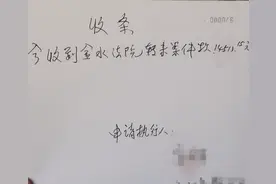 收条
今收到金水法院转来案件款14513.15元
申请执行人: